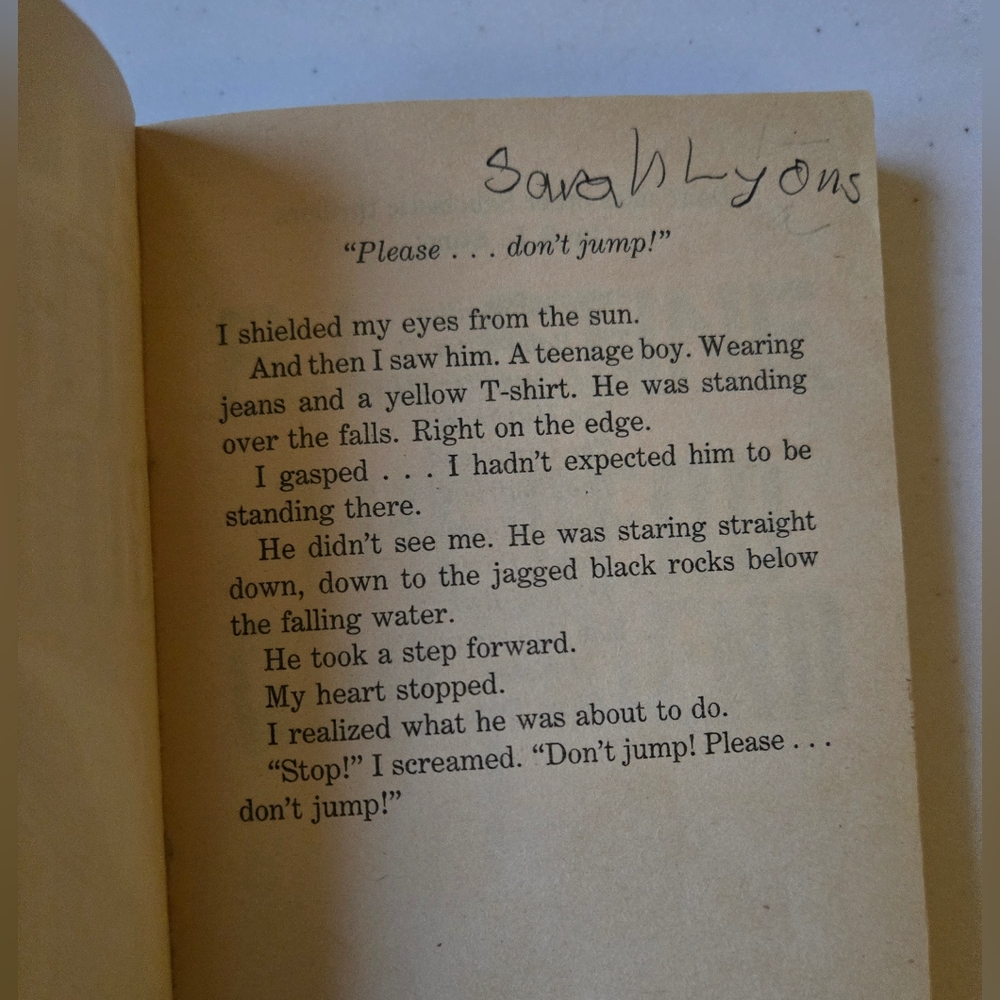 Sarah Lyons
“Please . . . don’t jump!”
I shielded my eyes from the sun.
And then I saw him. A teenage boy. Wearing
jeans and a yellow T-shirt. He was standing
over the falls. Right on the edge.
I gasped . . . I hadn’t expected him to be
standing there.
He didn’t see me. He was staring straight
down, down to the jagged black rocks below
the falling water.
He took a step forward.
My heart stopped.
I realized what he was about to do.
“Stop!” I screamed. “Don’t jump! Please . . .
don’t jump!”